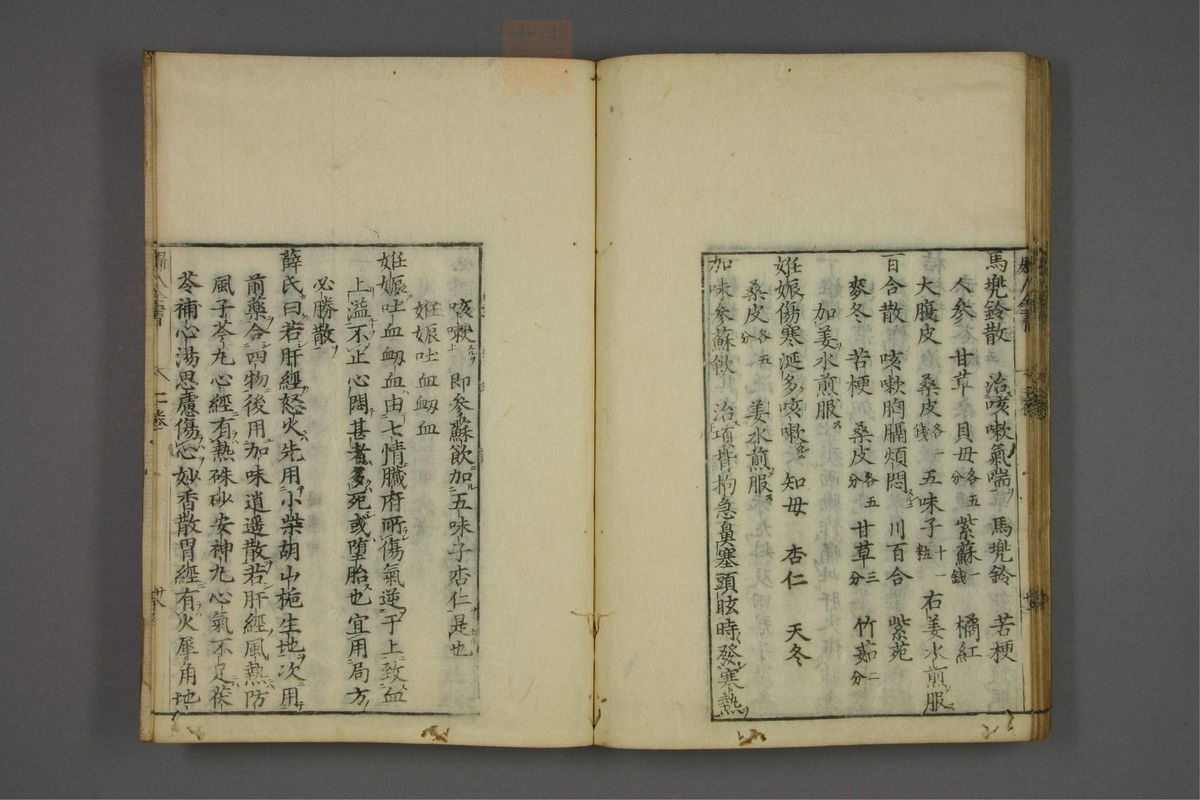 馬兜鈴散 治咳嗽氣喘 馬兜鈴 苦梗
人參 甘草 貝母各五分 紫蘇一錢 橘紅
大腹皮 桑皮各一錢 五味子十一粒 右姜水煎服
百合散 咳嗽胸膈煩悶 川百合 紫菀
麥冬 苦梗 桑皮各五分 甘草三分 竹茹二分
加姜水煎服
姙娠傷寒涎多咳嗽 知母 杏仁 天冬
桑皮各五分 姜水煎服
加味參蘇飲 治項背拘急鼻塞頭眩時發寒熱
咳嗽 即參蘇飲加五味子杏仁是也
姙娠吐血衂血
姙娠吐血衂血由七情臟府所傷氣逆于上致血
上溢不止心悶甚者多死或墮胎也宜用局方
必勝散
薛氏曰若肝經怒火先用小柴胡山梔生地次用
前藥合四物後用加味逍遥散若肝經風熱防
風子芩丸心經有熱硃砂安神丸心氣不足茯
苓補心湯思慮傷心妙香散胃經有火犀角地